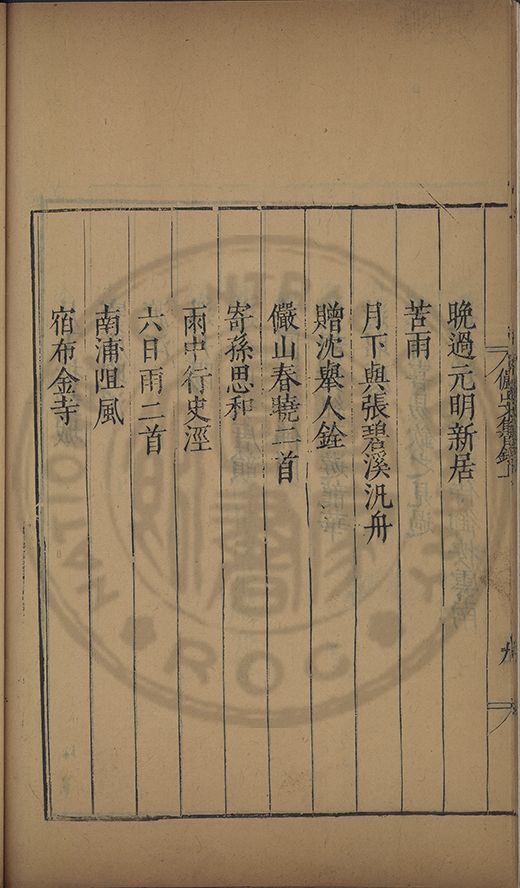 晚過元明新居
苦雨
月下與張碧溪汎舟
贈沈舉人銓
儼山春曉二首
寄孫思和
雨中行史涇
六日雨二首
南浦阻風
宿布金寺